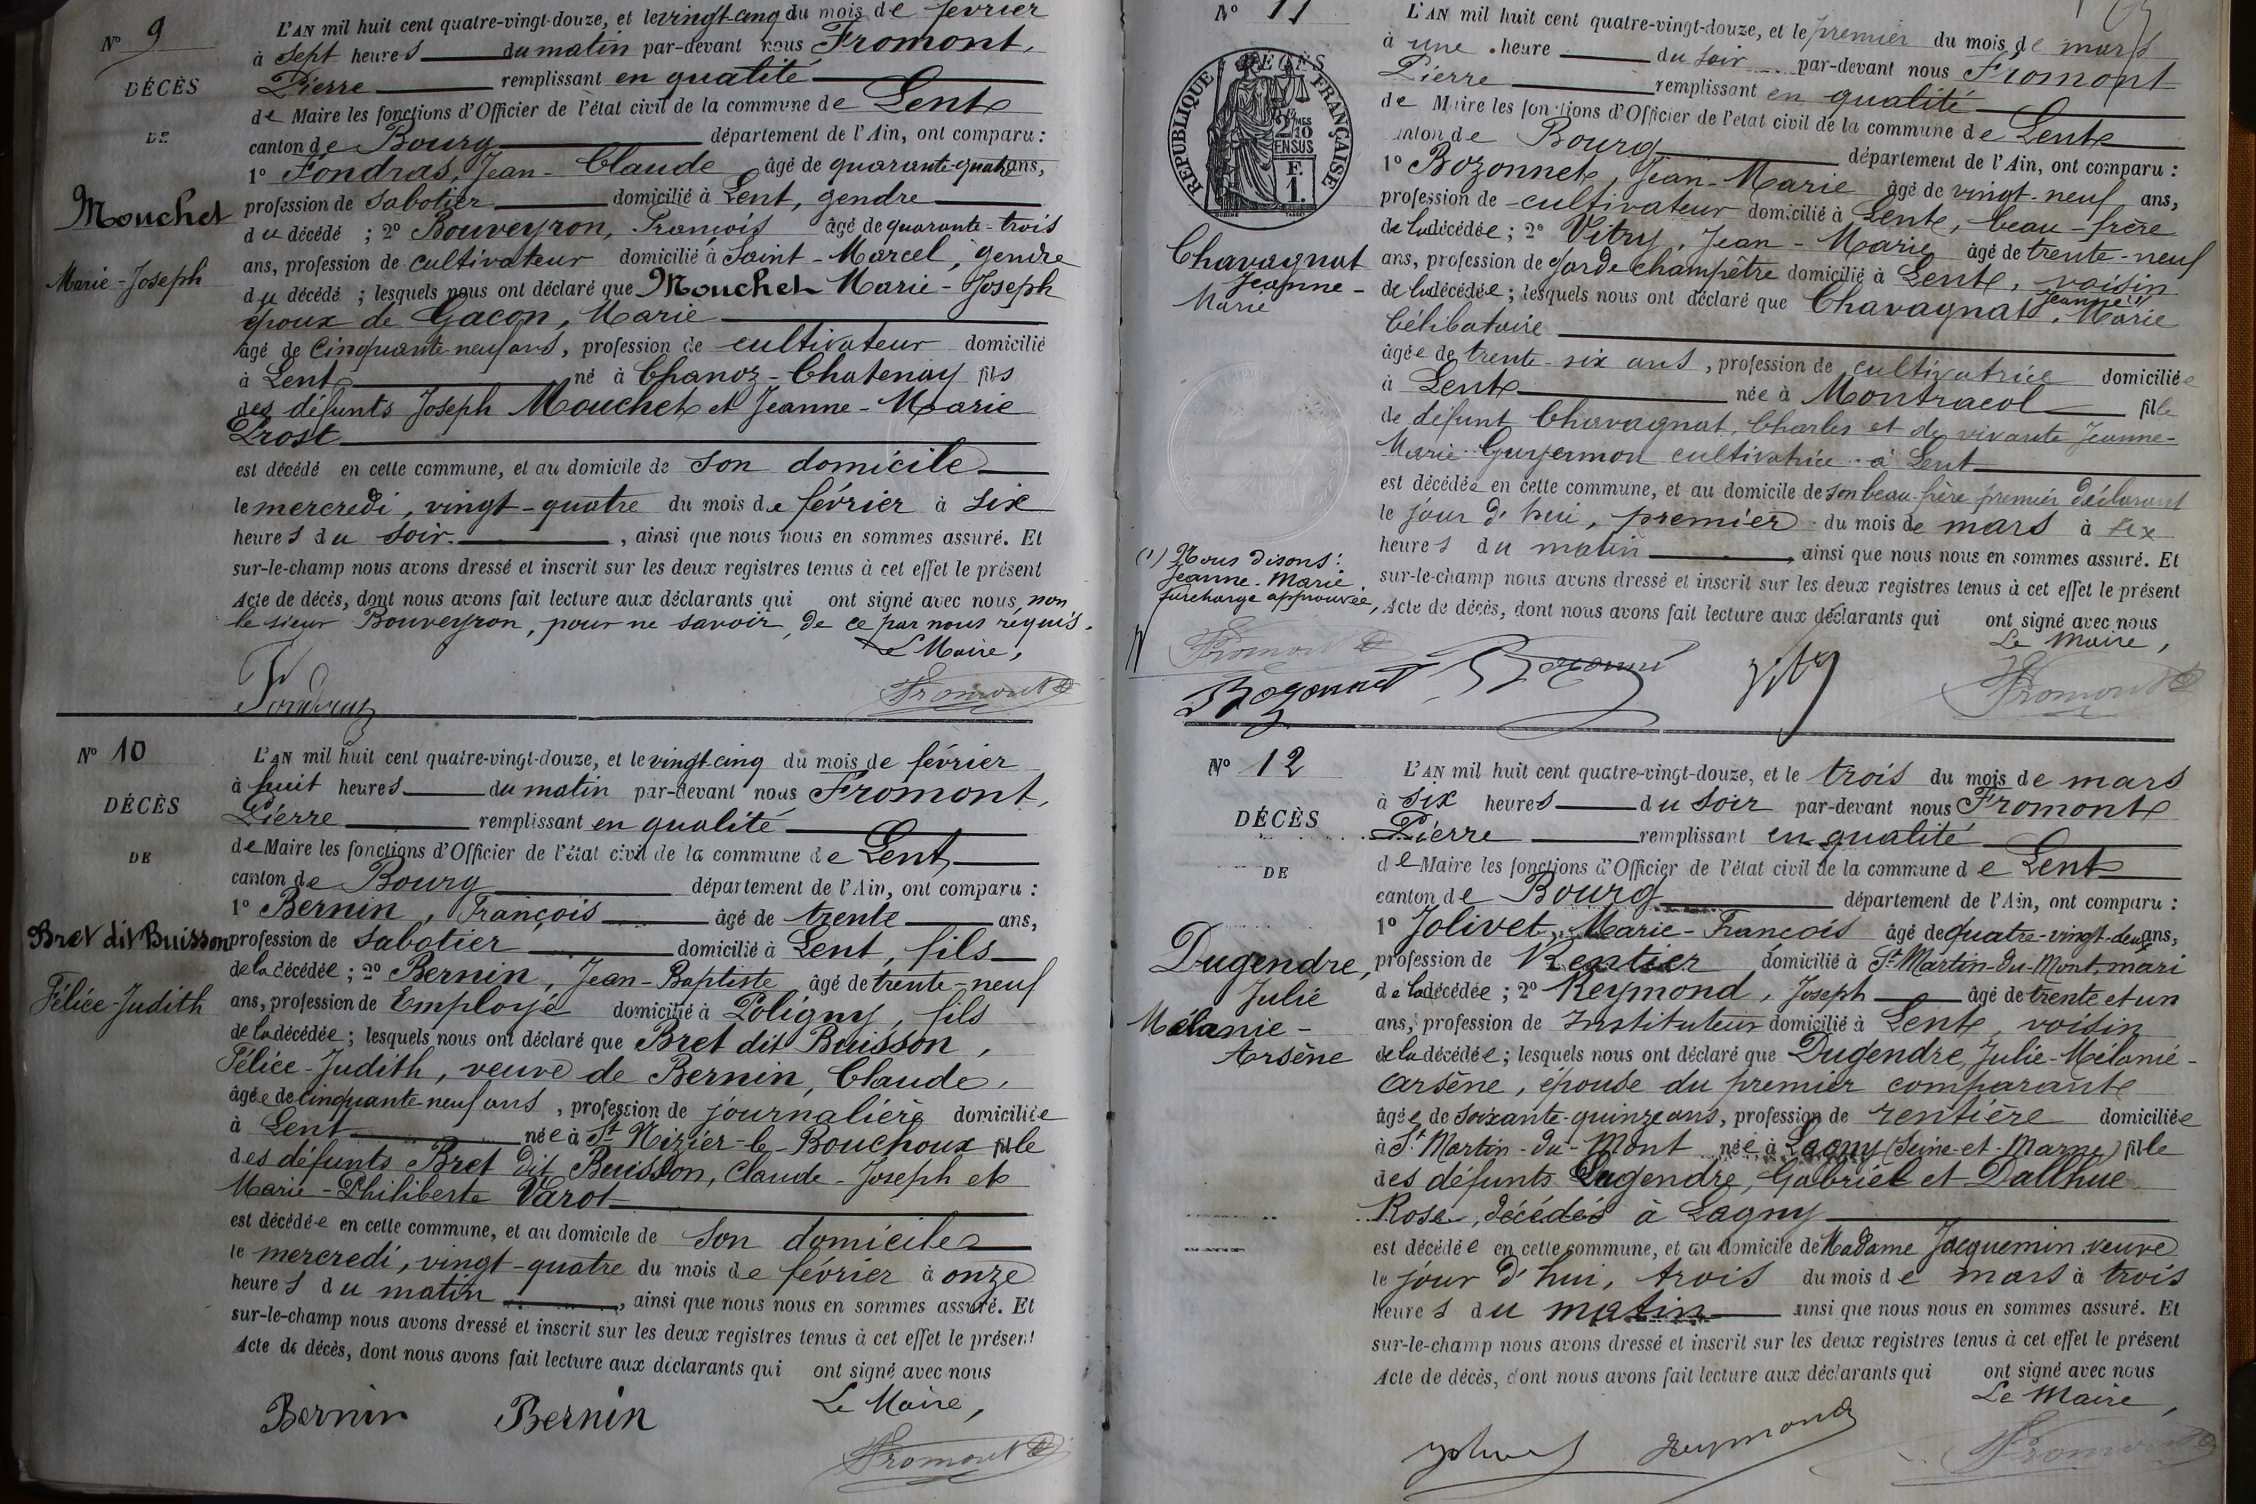 N° 9
DÉCÈS
DE
Mouchet
Marie-Joseph
L'AN mil huit cent quatre-vingt-douze, et le vingt-cinq du mois de février
à sept heures du matin par-devant nous Fromont,
Pierre remplissant en qualité
de Maire les fonctions d'Officier de l'état civil de la commune de Lent
canton de Bourg département de l'Ain, ont comparu :
1° Fondras, Jean-Claude âgé de quarante-quatre ans,
profession de sabotier domicilié à Lent, gendre
du décédé ; 2° Bouveyron, François âgé de quarante-trois
ans, profession de cultivateur domicilié à Saint-Marcel, gendre
du décédé ; lesquels nous ont déclaré que Mouchet Marie-Joseph
époux de Gacon, Marie
âgé de cinquante-neuf ans, profession de cultivateur domicilié
à Lent né à Chanoz-Chatenay fils
des défunts Joseph Mouchet et Jeanne-Marie
Prost
est décédé en cette commune, et au domicile de son domicile
le mercredi, vingt-quatre du mois de février à six
heures du soir, ainsi que nous nous en sommes assuré. Et
sur-le-champ nous avons dressé et inscrit sur les deux registres tenus à cet effet le présent
Acte de décès, dont nous avons fait lecture aux déclarants qui ont signé avec nous, non
le sieur Bouveyron, pour ne savoir, de ce par nous requis.
Le Maire,
Fondras
Fromont
N° 10
DÉCÈS
DE
Bret dit Buisson
Félice-Judith
L'AN mil huit cent quatre-vingt-douze, et le vingt-cinq du mois de février
à huit heures du matin par-devant nous Fromont,
Pierre remplissant en qualité
de Maire les fonctions d'Officier de l'état civil de la commune de Lent
canton de Bourg département de l'Ain, ont comparu :
1° Bernin, François âgé de trente ans,
profession de sabotier domicilié à Lent, fils
de la décédée ; 2° Bernin, Jean-Baptiste âgé de trente-neuf
ans, profession de Employé domicilié à Poligny, fils
de la décédée ; lesquels nous ont déclaré que Bret dit Buisson,
Félice-Judith, veuve de Bernin, Claude,
âgée de cinquante-neuf ans, profession de journalière domiciliée
à Lent née à St Nizier-le-Bouchoux fille
des défunts Bret dit Buisson, Claude-Joseph et
Marie-Philiberte Varot
est décédée en cette commune, et au domicile de son domicile
le mercredi, vingt-quatre du mois de février à onze
heures du matin, ainsi que nous nous en sommes assuré. Et
sur-le-champ nous avons dressé et inscrit sur les deux registres tenus à cet effet le présent
Acte de décès, dont nous avons fait lecture aux déclarants qui ont signé avec nous
Le Maire,
Bernin Bernin
Fromont
N° 11
RÉPUBLIQUE FRANÇAISE
DÉCÈS
2/10
EN SUS
F.
1.
Chavagnat
Jeanne-
Marie
L'AN mil huit cent quatre-vingt-douze, et le premier du mois de mars
à une heure du soir par-devant nous Fromont
Pierre remplissant en qualité
de Maire les fonctions d'Officier de l'état civil de la commune de Lent
canton de Bourg département de l'Ain, ont comparu :
1° Bozonnet, Jean-Marie âgé de vingt-neuf ans,
profession de cultivateur domicilié à Lent, beau-frère
de la décédée ; 2° Vitry, Jean-Marie âgé de trente-neuf
ans, profession de garde champêtre domicilié à Lent, voisin
de la décédée ; lesquels nous ont déclaré que Chavagnat, Jeanne Marie
Célibataire
âgée de trente-six ans, profession de cultivatrice domiciliée
à Lent née à Montracol fille
de défunt Chavagnat, Charles et de vivante Jeanne-
Marie Guyermon cultivatrice à Lent
est décédée en cette commune, et au domicile de son beau-frère premier déclarant
le jour d'hui, premier du mois de mars à six
heures du matin, ainsi que nous nous en sommes assuré. Et
sur-le-champ nous avons dressé et inscrit sur les deux registres tenus à cet effet le présent
Acte de décès, dont nous avons fait lecture aux déclarants qui ont signé avec nous
Le Maire,
(1) Nous disons :
Jeanne-Marie,
surcharge approuvée,
Fromont
Bozonnet
Fromont
N° 12
DÉCÈS
DE
Dugendre,
Julie
Mélanie-
Arsène
L'AN mil huit cent quatre-vingt-douze, et le trois du mois de mars
à six heures du soir par-devant nous Fromont
Pierre remplissant en qualité
de Maire les fonctions d'Officier de l'état civil de la commune de Lent
canton de Bourg département de l'Ain, ont comparu :
1° Jolivet, Marie-François âgé de quatre-vingt-deux ans,
profession de Rentier domicilié à St Martin-du-Mont, mari
de la décédée ; 2° Reymond, Joseph âgé de trente et un
ans, profession de Instituteur domicilié à Lent, voisin
de la décédée ; lesquels nous ont déclaré que Dugendre, Julie-Mélanie-
Arsène, épouse du premier comparant
âgée de soixante-quinze ans, profession de rentière domiciliée
à St Martin-du-Mont née à Lagny (Seine-et-Marne) fille
des défunts Dugendre, Gabriel et Dallhue
Rose, décédés à Lagny
est décédée en cette commune, et au domicile de Madame Jacquemin veuve
le jour d'hui, trois du mois de mars à trois
heures du matin ainsi que nous nous en sommes assuré. Et
sur-le-champ nous avons dressé et inscrit sur les deux registres tenus à cet effet le présent
Acte de décès, dont nous avons fait lecture aux déclarants qui ont signé avec nous
Le Maire,
Jolivet Reymond
Fromont